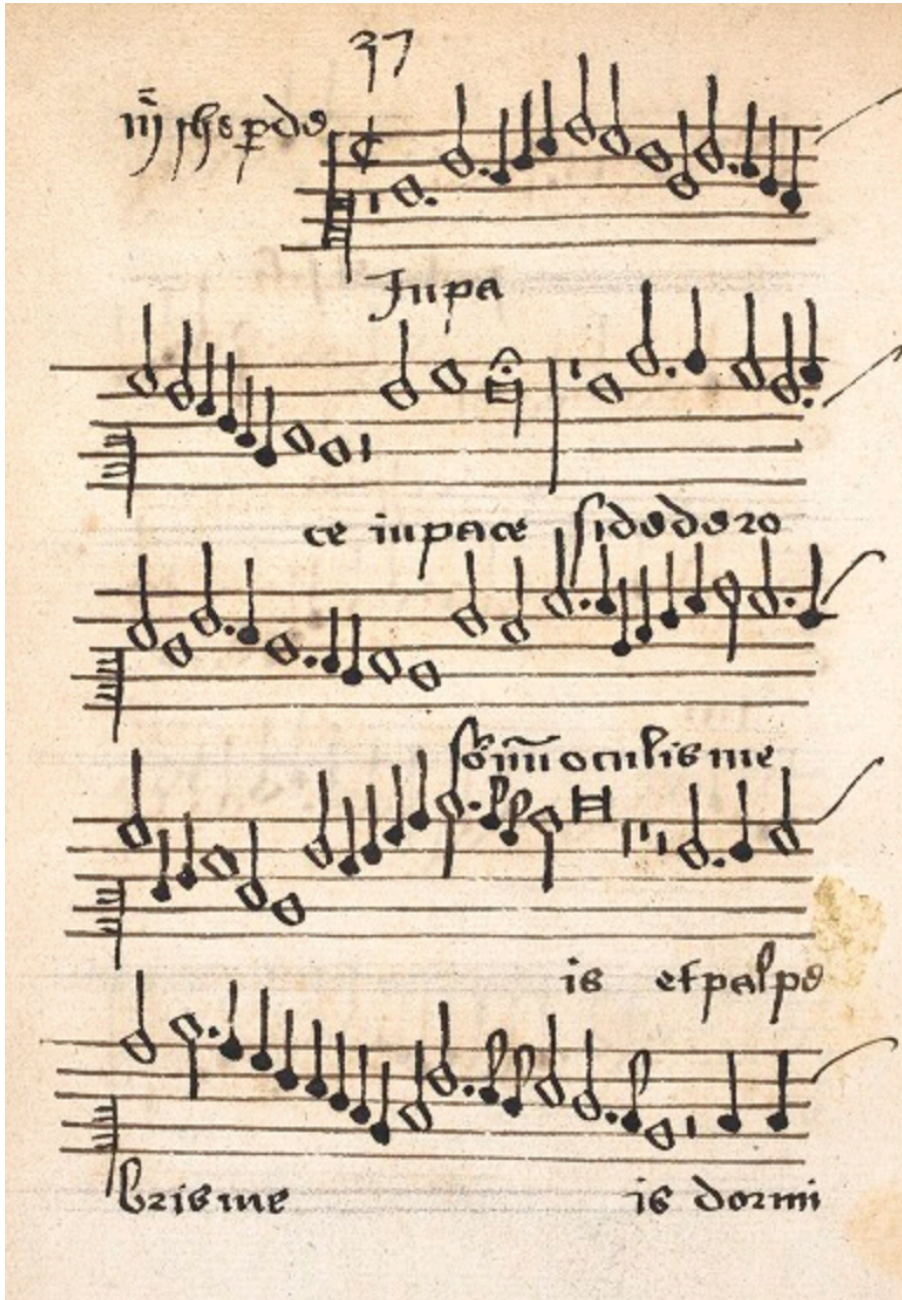 37
In pa
ce in pace si dedero
som̄ oculis me
is et palpe
bris me is dormi